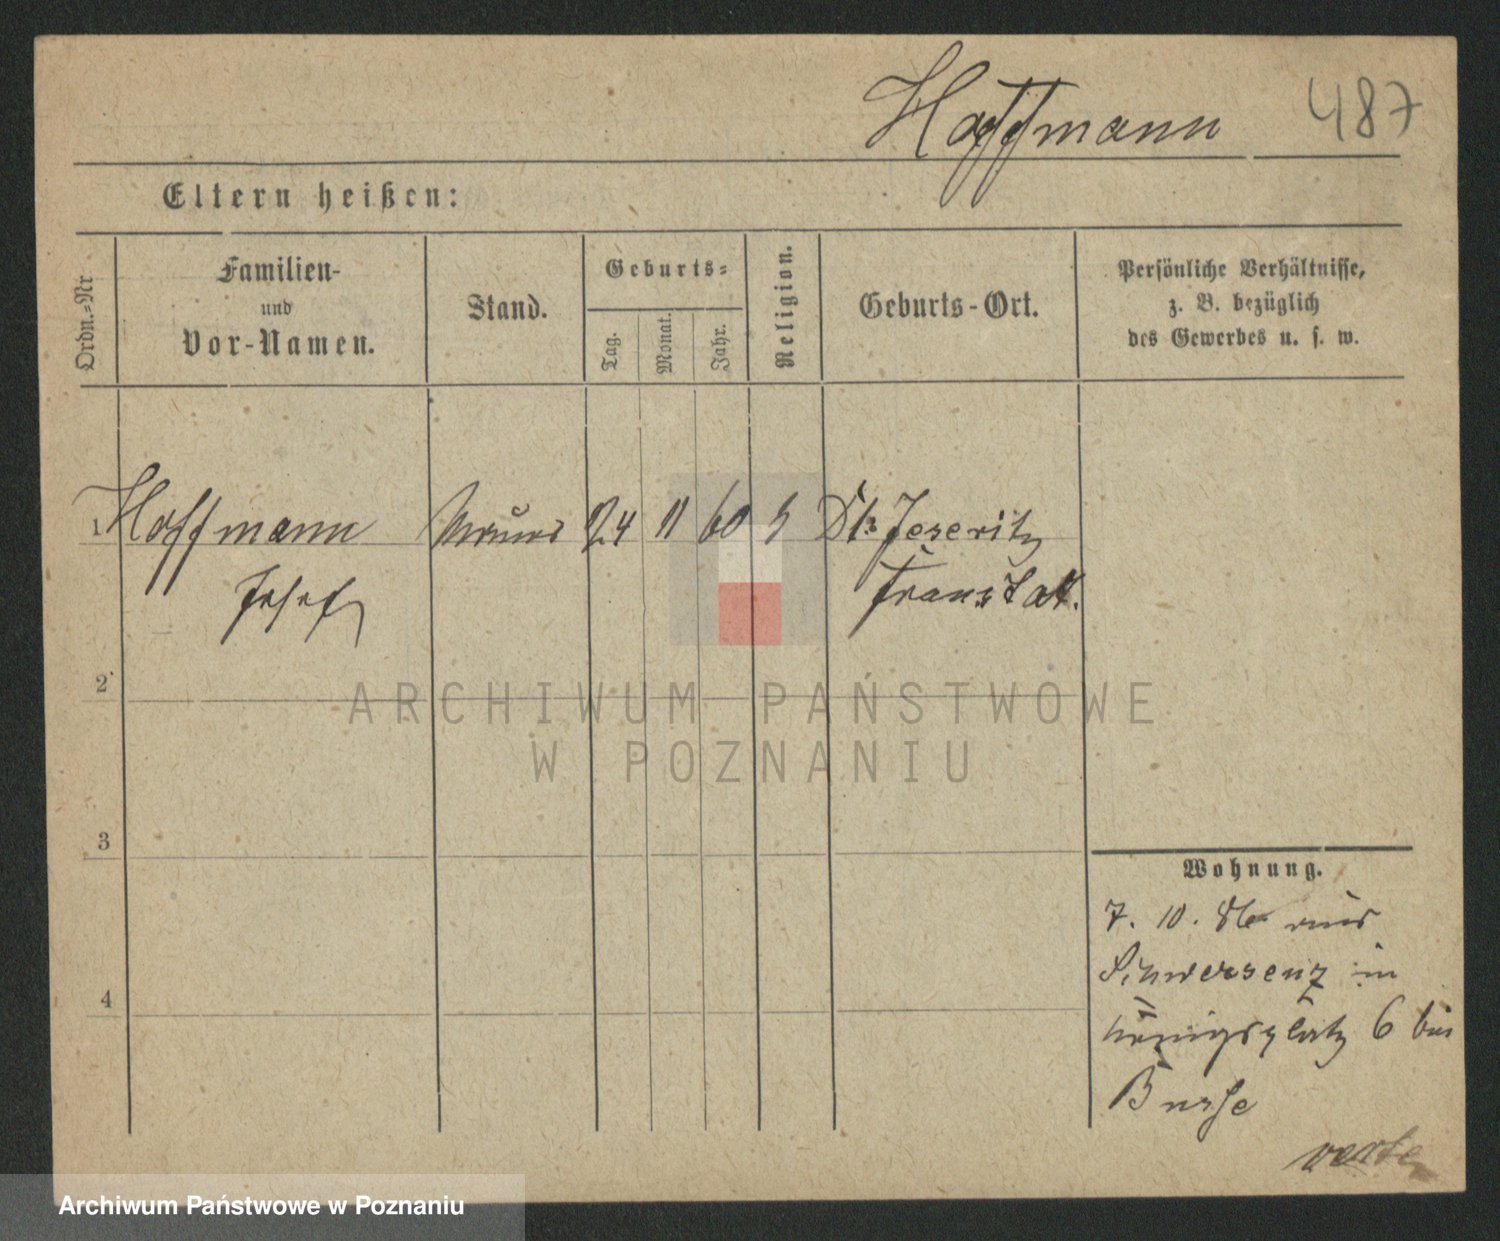 Hoffmann 487
Eltern heißen:
Ordn.=Nr
Familien-
und
Vor-Namen.
Stand.
Geburts=
Tag.
Monat.
Jahr.
Religion.
Geburts-Ort.
Persönliche Verhältnisse,
z. B. bezüglich
des Gewerbes u. s. w.
1 Hoffmann 24 11 60 Jeseritz
Josef Fraustadt.
2
ARCHIWUM PAŃSTWOWE
W POZNANIU
3
4
Wohnung.
7. 10. 86 aus
Schwersenz in
Königsplatz 6 bei
Busse
verte
Archiwum Państwowe w Poznaniu